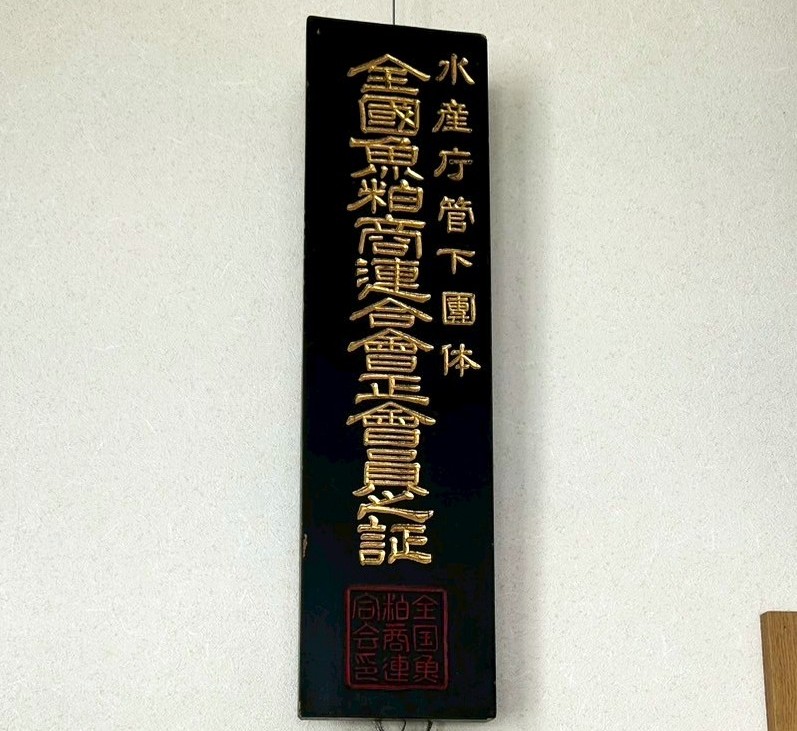 水産庁管下團体
全國魚粕商連合會正會員之証
全国魚
粕商連
合会印